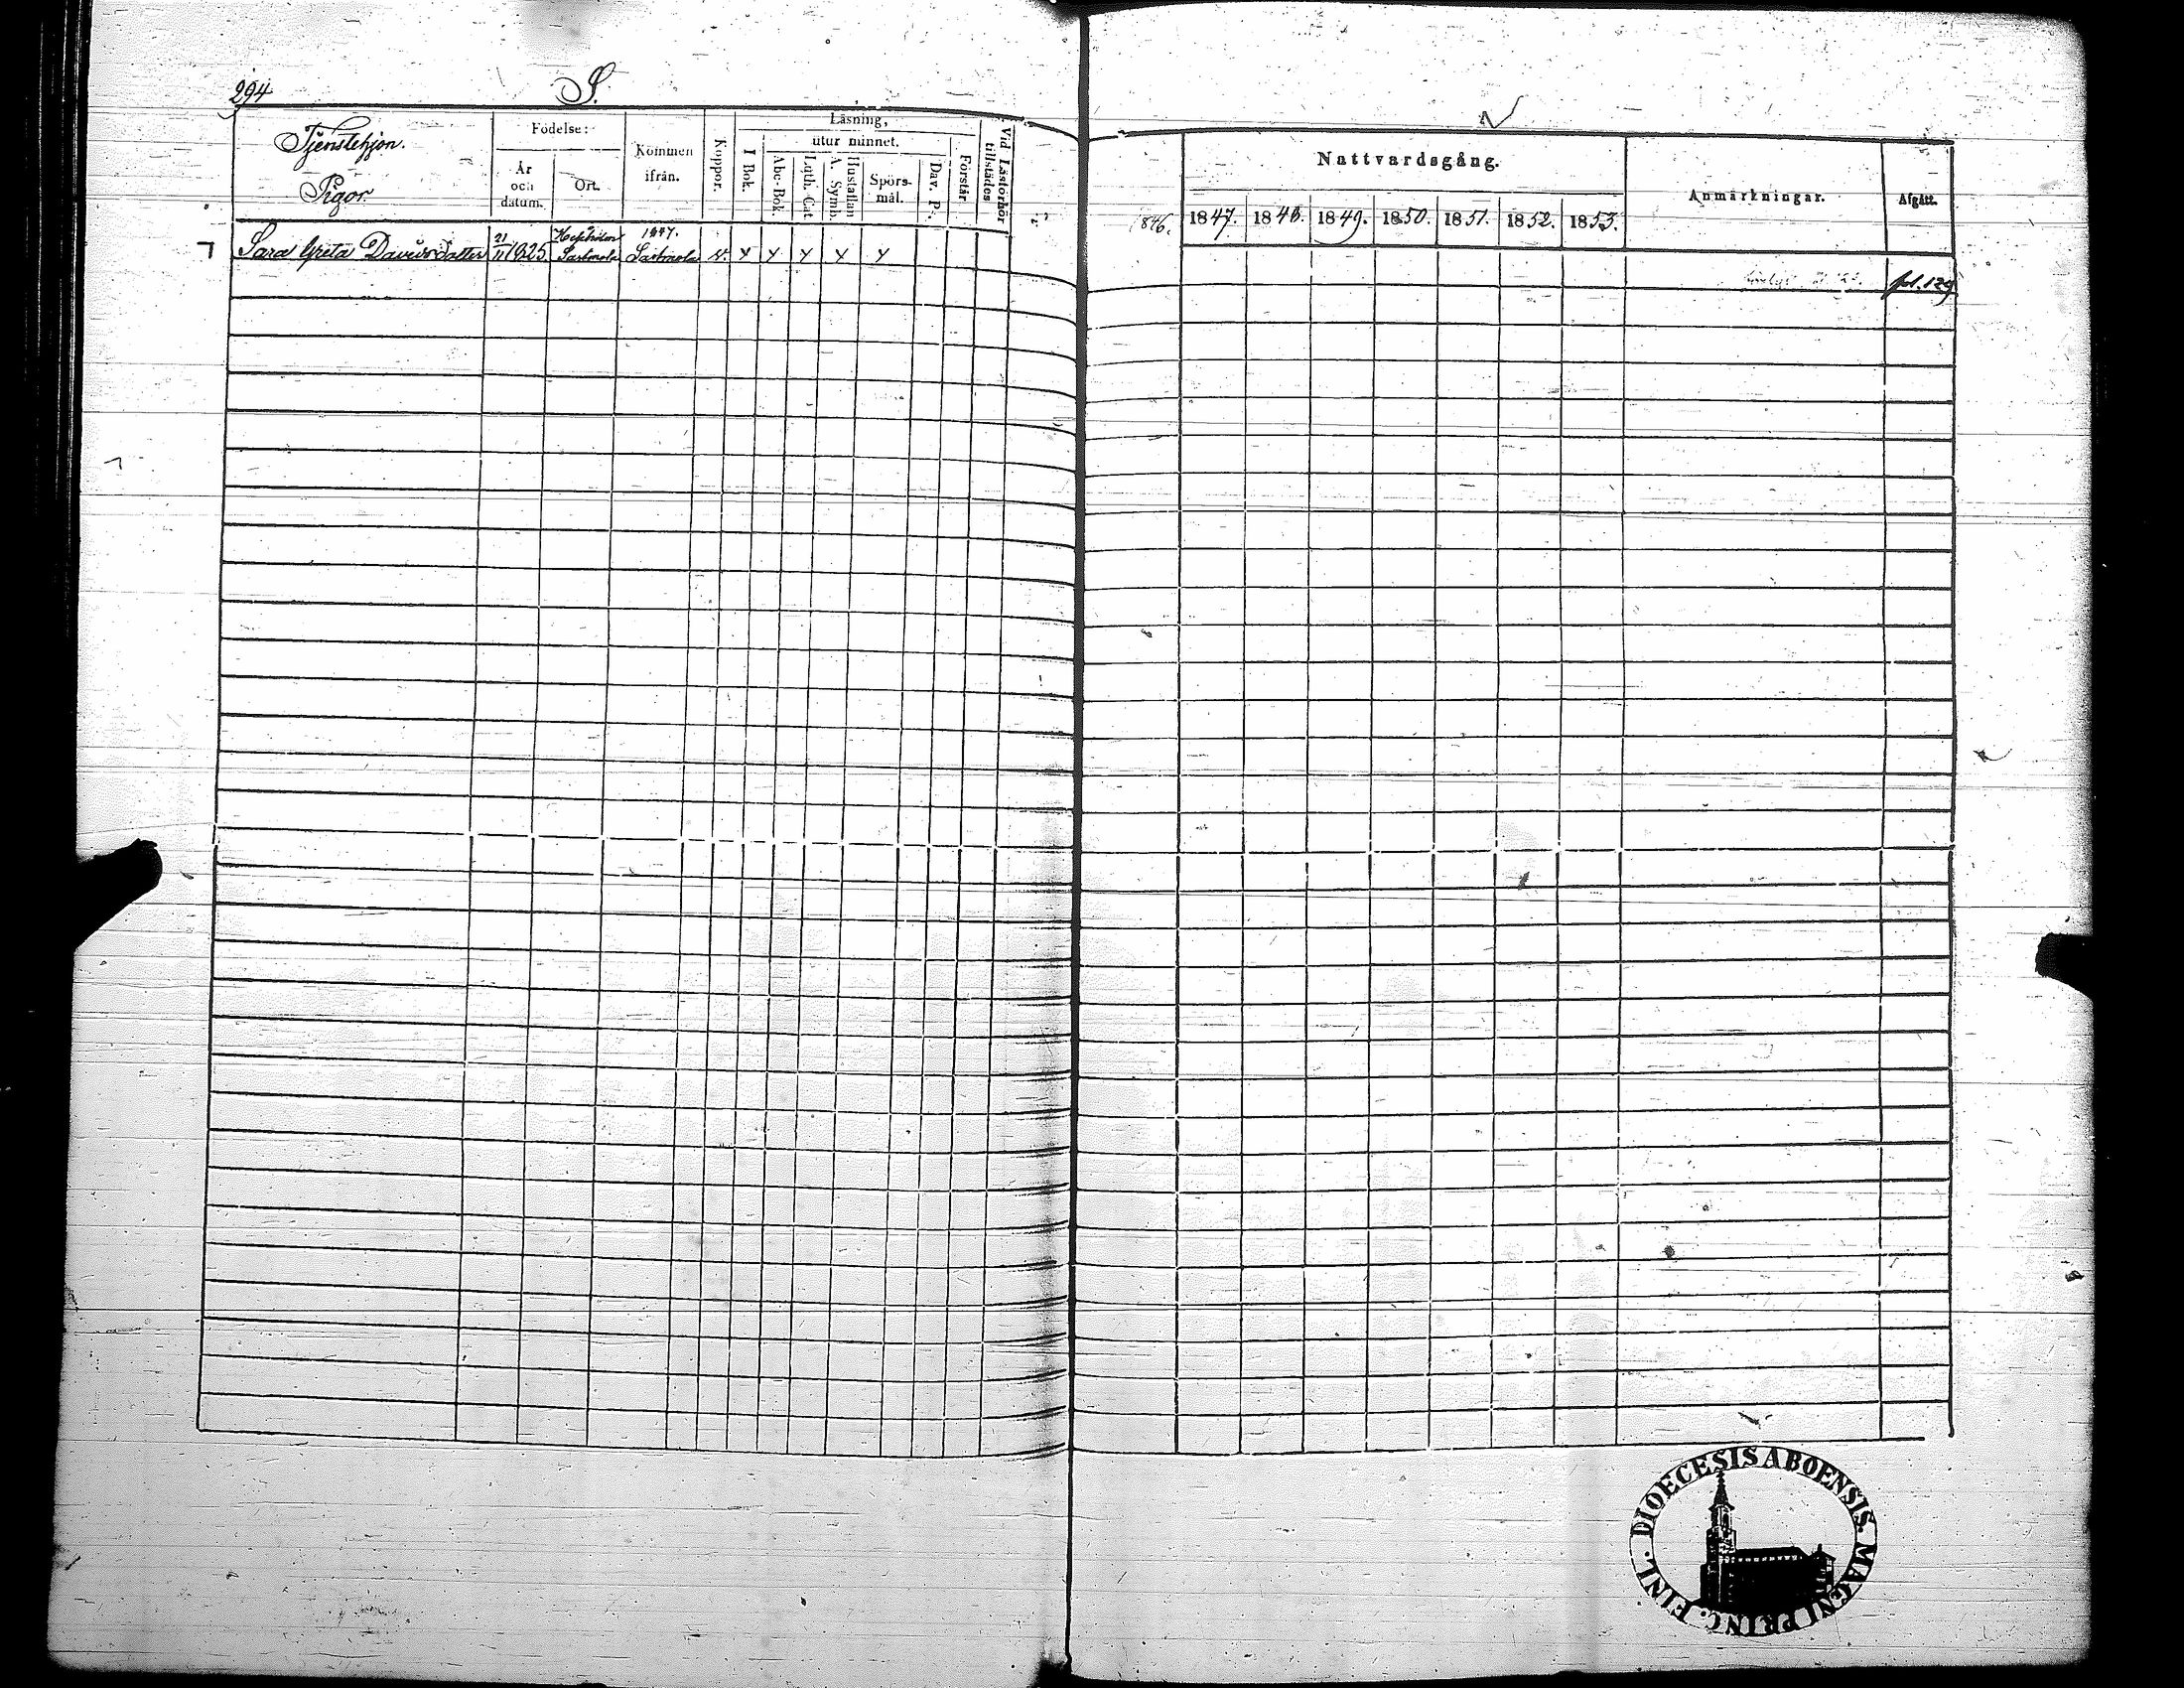 294 S.
Tjenstehjon.
Pigor.
Födelse:
År
och
datum.
Ort.
Kommen
ifrån.
Koppor.
Läsning,
utur minnet.
I Bok.
Abc-Bok.
Luth. Cat
A. Symb.
Hustaflan
Spörs-
mål.
Dav. P.
Förstår
Vid Läsförhör
tillstädes
1846.
Nattvardsgång.
1847. 1848. 1849. 1850. 1851. 1852. 1853.
Anmärkningar.
Afgått.
1847.
Sara Greta Davidsdotter 21/11 1825 Sastmola Sastmola
fol. 129
DIOECESIS ABOENSIS. MAGNI PRINC. FINL.